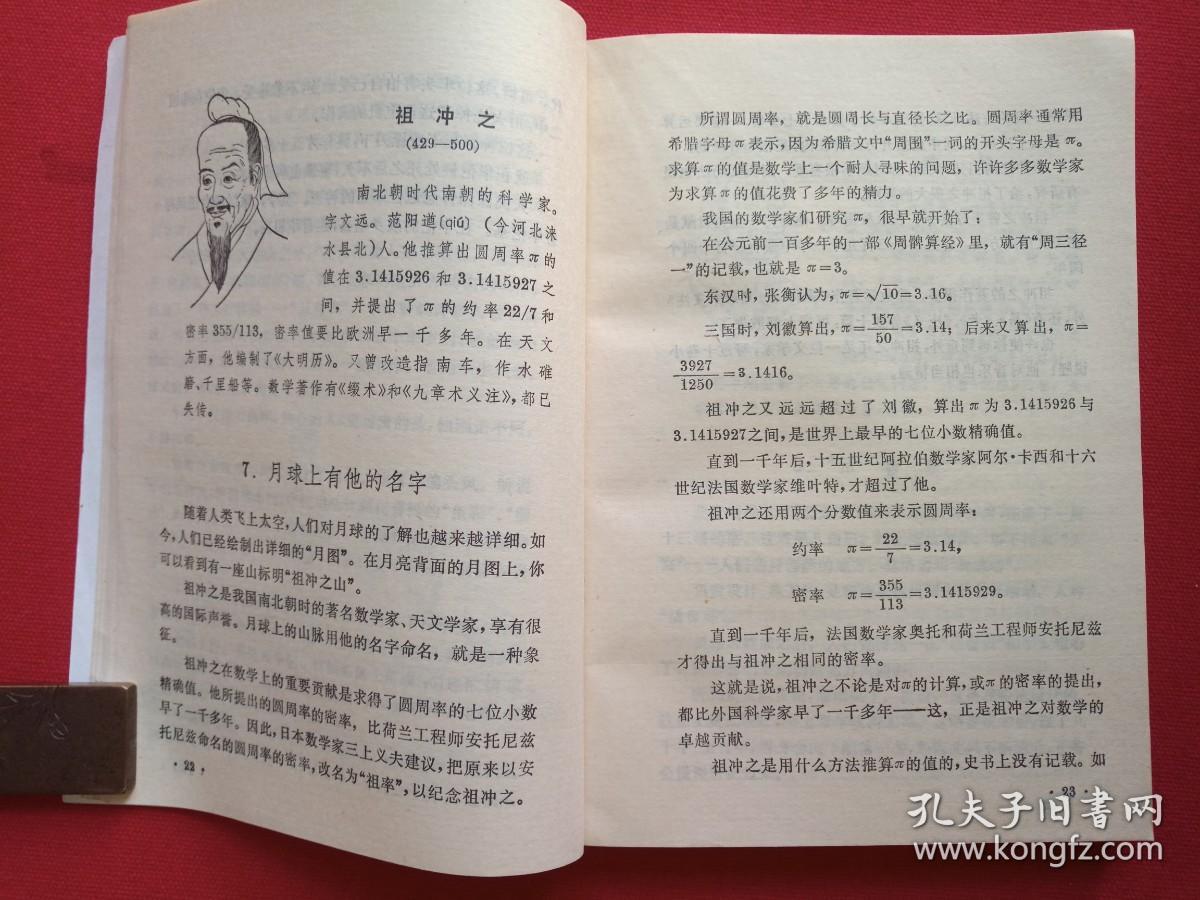 祖冲之
(429—500)
南北朝时代南朝的科学家。
字文远。范阳遒(qiú)(今河北涞
水县北)人。他推算出圆周率π的
值在3.1415926和3.1415927之
间，并提出了π的约率22/7和
密率355/113，密率值要比欧洲早一千多年。在天文
方面，他编制了《大明历》。又曾改造指南车，作水碓
磨、千里船等。数学著作有《缀术》和《九章术义注》，都已
失传。
7. 月球上有他的名字
随着人类飞上太空，人们对月球的了解也越来越详细。如
今，人们已经绘制出详细的“月图”。在月亮背面的月图上，你
可以看到有一座山标明“祖冲之山”。
祖冲之是我国南北朝时的著名数学家、天文学家，享有很
高的国际声誉。月球上的山脉用他的名字命名，就是一种象
征。
祖冲之在数学上的重要贡献是求得了圆周率的七位小数
精确值。他所提出的圆周率的密率，比荷兰工程师安托尼兹
早了一千多年。因此，日本数学家三上义夫建议，把原来以安
托尼兹命名的圆周率的密率，改名为“祖率”，以纪念祖冲之。
· 22 ·
所谓圆周率，就是圆周长与直径长之比。圆周率通常用
希腊字母π表示，因为希腊文中“周围”一词的开头字母是π。
求算π的值是数学上一个耐人寻味的问题，许许多多数学家
为求算π的值花费了多年的精力。
我国的数学家们研究π，很早就开始了；
在公元前一百多年的一部《周髀算经》里，就有“周三径
一”的记载，也就是π=3。
东汉时，张衡认为，π=√10=3.16。
三国时，刘徽算出，π=157/50=3.14；后来又算出，π=
3927/1250=3.1416。
祖冲之又远远超过了刘徽，算出π为3.1415926与
3.1415927之间，是世界上最早的七位小数精确值。
直到一千年后，十五世纪阿拉伯数学家阿尔·卡西和十六
世纪法国数学家维叶特，才超过了他。
祖冲之还用两个分数值来表示圆周率：
约率 π=22/7=3.14，
密率 π=355/113=3.1415929。
直到一千年后，法国数学家奥托和荷兰工程师安托尼兹
才得出与祖冲之相同的密率。
这就是说，祖冲之不论是对π的计算，或π的密率的提出，
都比外国科学家早了一千多年——这，正是祖冲之对数学的
卓越贡献。
祖冲之是用什么方法推算π的值的，史书上没有记载。如
· 23 ·
孔夫子旧书网
www.kongfz.com